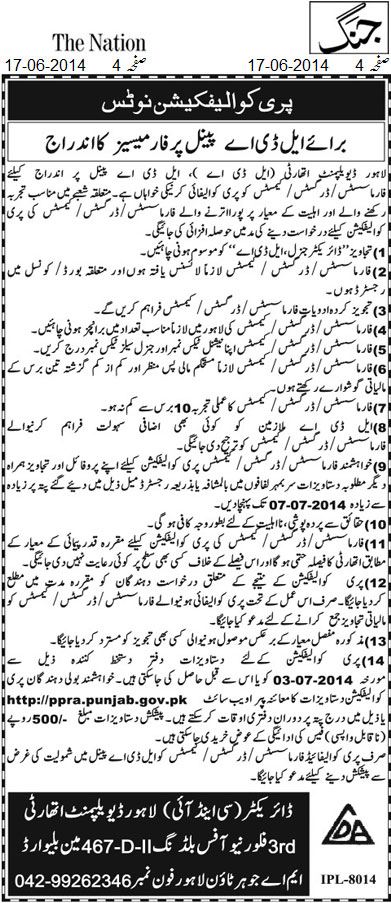 The Nation
جنگ
17-06-2014 صفحہ 4
17-06-2014 صفحہ 4
پری کوالیفکیشن نوٹس
برائے ایل ڈی اے پینل پر فارمیسیز کا اندراج
لاہور ڈویلپمنٹ اتھارٹی (ایل ڈی اے)، ایل ڈی اے پینل پر اندراج کیلئے
فارماسسٹس/ڈرگسٹس/کیمسٹس کو پری کوالیفائی کرنیکی خواہاں ہے۔ متعلقہ شعبے میں مناسب تجربہ
رکھنے والے اور اہلیت کے معیار پر پورا اترنے والے فارماسسٹس/ڈرگسٹس/کیمسٹس کی پری
کوالیفکیشن کیلئے درخواست دینے کی مد میں حوصلہ افزائی کی جائیگی۔
1) تجاویز "ڈائریکٹر جنرل، ایل ڈی اے" کو موسوم ہونی چاہئیں۔
2) فارماسسٹس/ڈرگسٹس/کیمسٹس لازماً لائسنس یافتہ ہوں اور متعلقہ بورڈ/کونسل میں
رجسٹرڈ ہوں۔
3) تجویز کردہ ادویات فارماسسٹس/ڈرگسٹس/کیمسٹس فراہم کریں گے۔
4) فارماسسٹس/ڈرگسٹس/کیمسٹس کی لاہور میں لازماً مناسب تعداد میں برانچز ہونی چاہئیں۔
5) فارماسسٹس/ڈرگسٹس/کیمسٹس اپنا نیشنل ٹیکس نمبر اور جنرل سیلز ٹیکس نمبر درج کریں۔
6) فارماسسٹس/ڈرگسٹس/کیمسٹس لازماً مستحکم مالی پس منظر اور کم از کم گزشتہ تین برس کے
مالیاتی گوشوارے رکھتے ہوں۔
7) فارماسسٹس/ڈرگسٹس/کیمسٹس کا عملی تجربہ 10 برس سے کم نہ ہو۔
8) ایل ڈی اے ملازمین کو کوئی بھی اضافی سہولت فراہم کرنیوالے
فارماسسٹس/ڈرگسٹس/کیمسٹس کو ترجیح دی جائیگی۔
9) خواہشمند فارماسسٹس/ڈرگسٹس/کیمسٹس پری کوالیفکیشن کیلئے اپنے پروفائل اور تجاویز ہمراہ
دیگر مطلوبہ دستاویزات سربمہر لفافوں میں بالمشافہ یا بذریعہ رجسٹرڈ میل ذیل میں دیئے گئے پتہ پر زیادہ
سے زیادہ 07-07-2014 تک پہنچا دیں۔
10) حقائق سے پردہ پوشی، نااہلیت کے لئے بطور وجہ کافی ہوگی۔
11) فارماسسٹس/ڈرگسٹس/کیمسٹس کی پری کوالیفکیشن کیلئے مقررہ قدر پیمائی کے معیار کے
مطابق اتھارٹی کا فیصلہ حتمی ہوگا اور اس فیصلے کے خلاف کسی بھی سطح پر کوئی رعایت نہیں دی جائیگی۔
12) پری کوالیفکیشن کے نتیجے کے متعلق درخواست دہندگان کو مقررہ مدت میں مطلع
کر دیا جائیگا۔ صرف اس عمل کے تحت پری کوالیفائی ہونیوالے فارماسسٹس/ڈرگسٹس/کیمسٹس کو
مالیاتی تجاویز جمع کرانے کے لئے مدعو کیا جائیگا۔
13) مذکورہ مفصل معیار کے برعکس موصول ہونیوالی کسی بھی تجویز کو مسترد کر دیا جائیگا۔
14) پری کوالیفکیشن کے لئے دستاویزات دفتر دستخط کنندہ ذیل سے
مورخہ 03-07-2014 کو یا اس سے قبل حاصل کی جاسکتی ہیں۔ خواہشمند بولی دہندگان پری
کوالیفکیشن دستاویزات کا معائنہ پپرا ویب سائٹ http://ppra.punjab.gov.pk
یا ذیل میں درج پتہ پر دوران دفتری اوقات کر سکتے ہیں۔ پیشکش دستاویزات مبلغ -/500 روپے
(ناقابل واپسی) فیس کی ادائیگی کے عوض خریدی جاسکتی ہیں۔
صرف پری کوالیفائیڈ فارماسسٹس/ڈرگسٹس/کیمسٹس کو ایل ڈی اے پینل میں شمولیت کی غرض
سے پیشکش دینے کیلئے مدعو کیا جائیگا۔
ڈائریکٹر (سی اینڈ آئی) لاہور ڈویلپمنٹ اتھارٹی
3rd فلور نیو آفس بلڈنگ 467-D-II مین بلیوارڈ
ایم اے جوہر ٹاؤن لاہور فون نمبر 042-99262346
LDA
IPL-8014